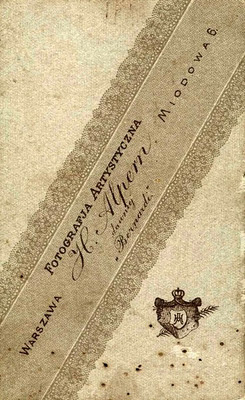 FOTOGRAFJA ARTYSTYCZNA
H. Alpern.
dawniej
„Bernardi."
WARSZAWA
MIODOWA 6.